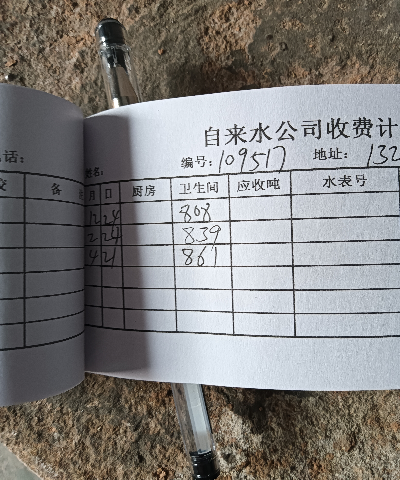 自来水公司收费计
话: 姓名: 编号: 109517 地址: 132
备 月 日 厨房 卫生间 应收吨 水表号
12 24 808
2 24 839
4 21 861